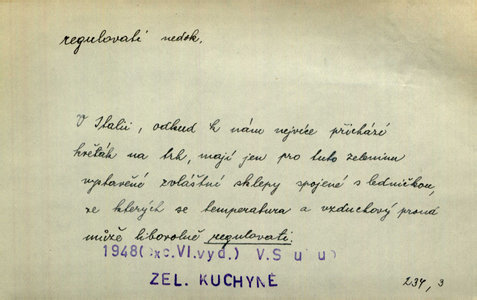 regulovati nedok.
V Italii, odkud k nám nejvíce přichází
květák na trh, mají jen pro tuto zeleninu
vystavěné zvláštní sklepy spojené s ledničkou,
ze kterých se temperatura a vzduchový proud
může libovolně regulovati.
1948( xc.VI.vyd.) V.S u u
ZEL. KUCHYNĚ
237, 3